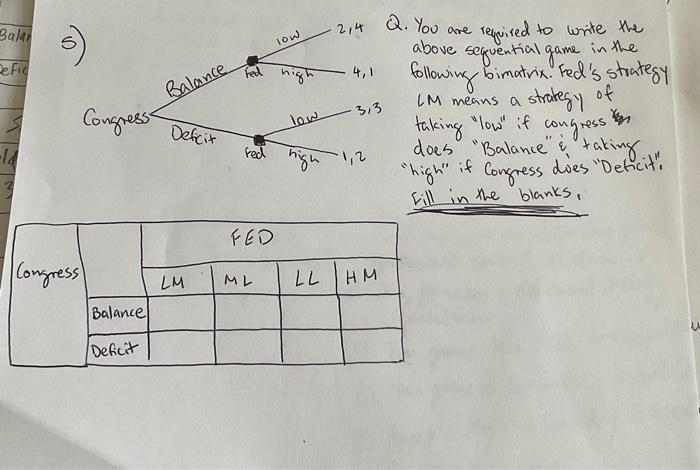 Balan
Defic
5)
low
2,4
Balance
Fed
high
4,1
Congress
low
3,3
Deficit
Fed
high
1,2
Q. You are required to write the
above sequential game in the
following bimatrix. Fed's strategy
LM means a strategy of
taking "low" if congress
does "Balance" & taking
"high" if Congress does "Deficit".
Fill in the blanks.
FED
Congress
LM ML LL HM
Balance
Deficit